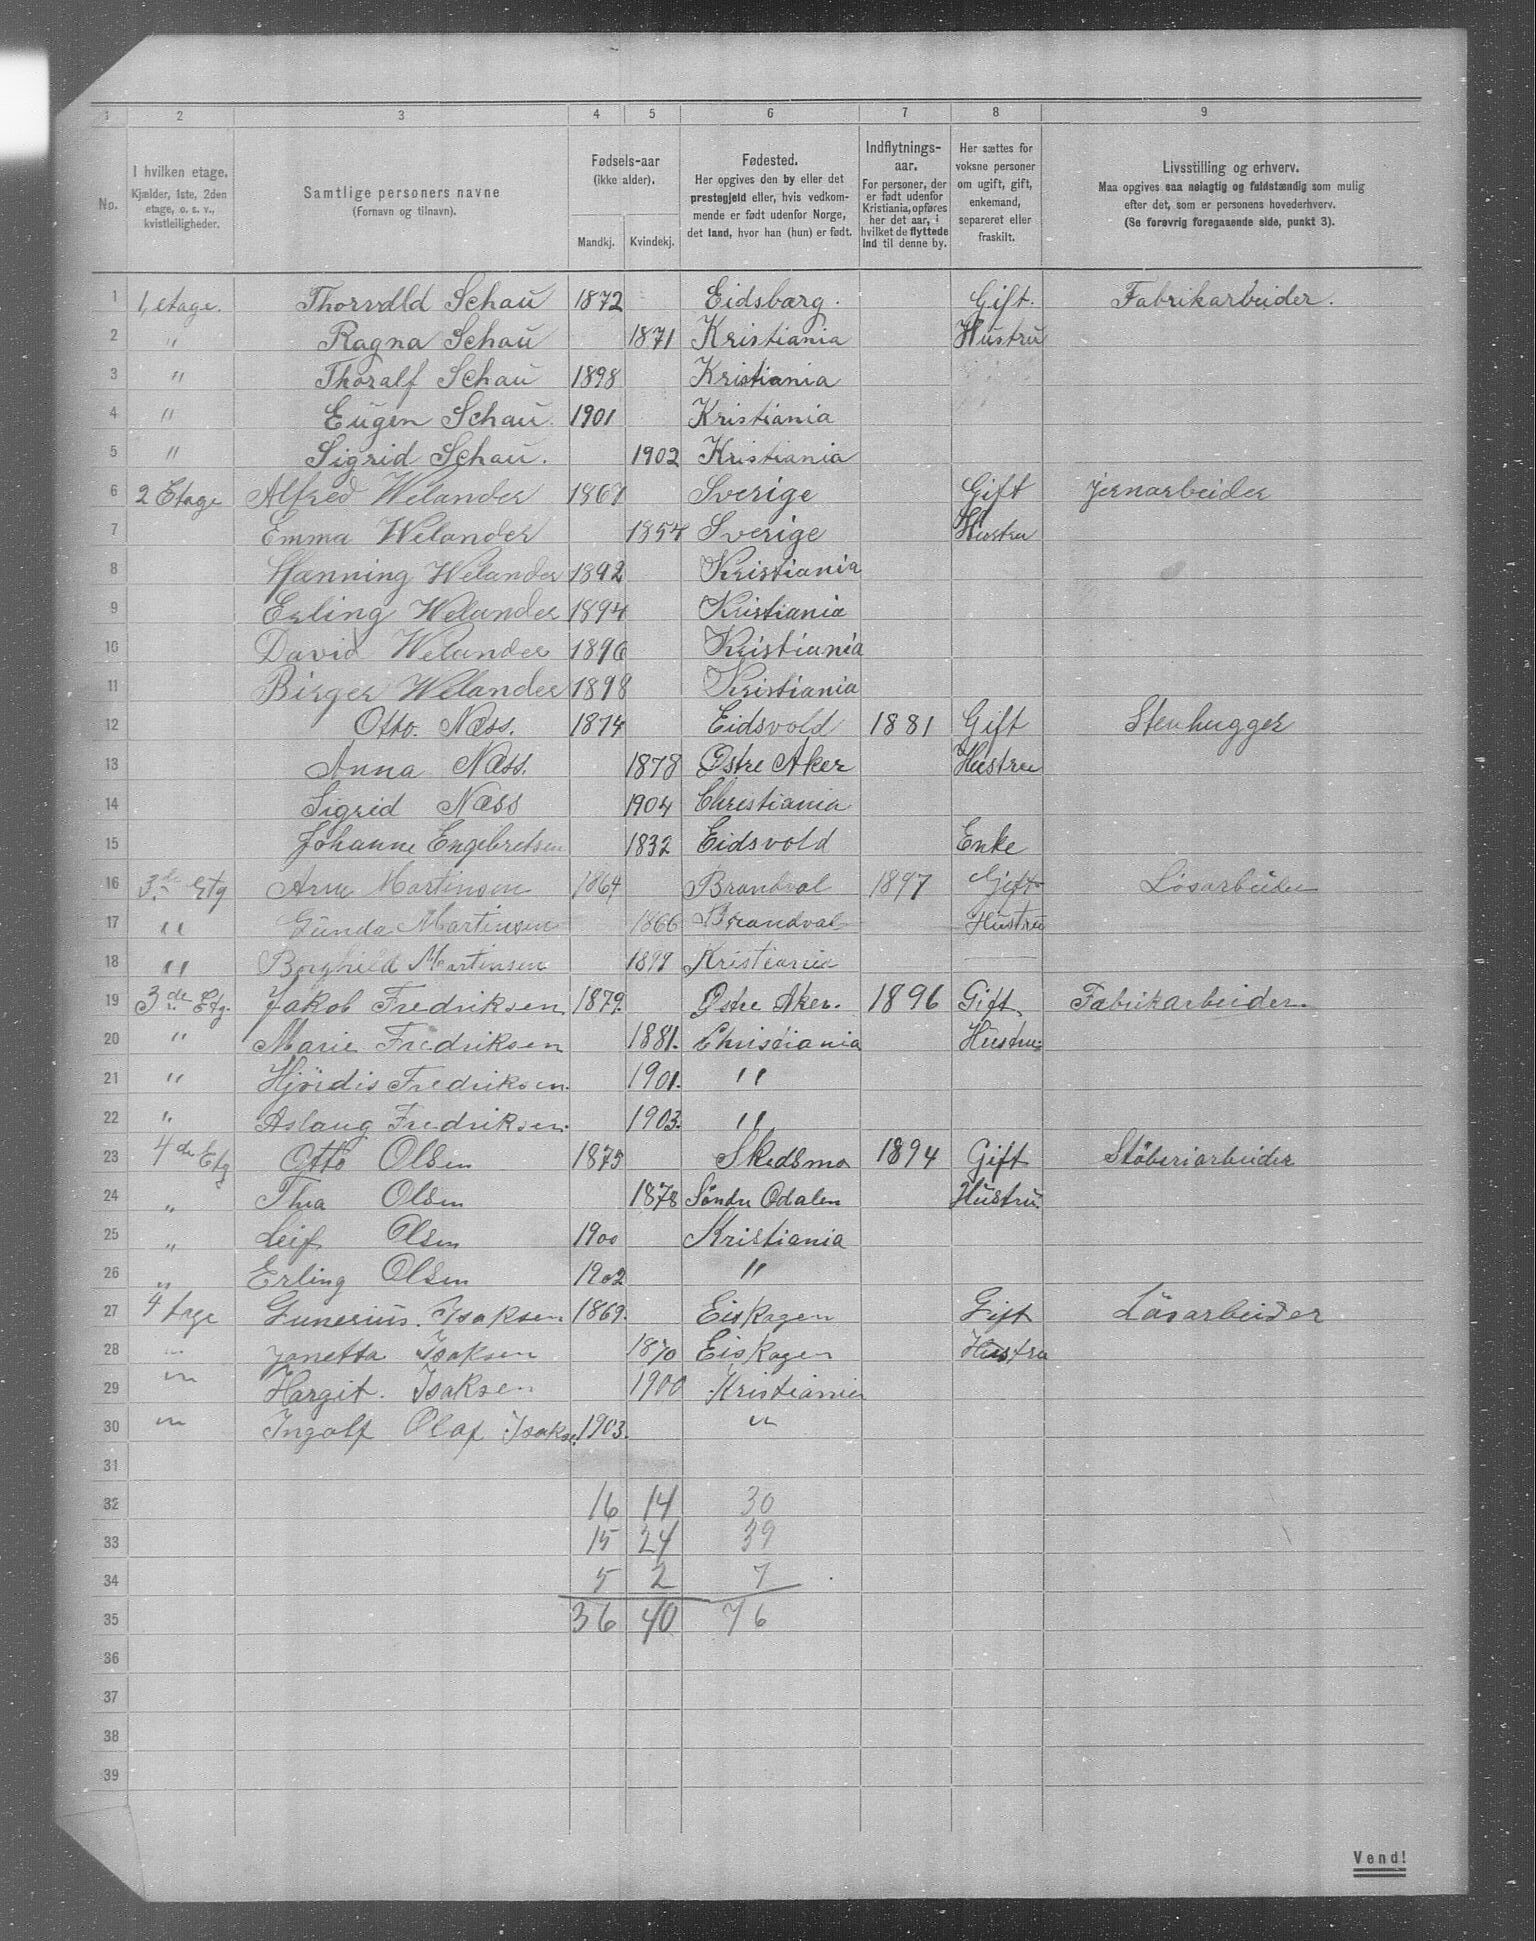 1 2 3 4 5 6 7 8 9
No.
I hvilken etage.
Kjælder, 1ste, 2den
etage, o. s. v.,
kvistleiligheder.
Samtlige personers navne
(Fornavn og tilnavn).
Fødsels-aar
(ikke alder).
Mandkj. Kvindekj.
Fødested.
Her opgives den by eller det
prestegjeld eller, hvis vedkom-
mende er født udenfor Norge,
det land, hvor han (hun) er født.
Indflytnings-
aar.
For personer, der
er født udenfor
Kristiania, opføres
her det aar, i
hvilket de flyttede
ind til denne by.
Her sættes for
voksne personer
om ugift, gift,
enkemand,
separeret eller
fraskilt.
Livsstilling og erhverv.
Maa opgives saa nøiagtig og fuldstændig som mulig
efter det, som er personens hovederhverv.
(Se forøvrig foregaaende side, punkt 3).
1 1, etage. Thorvdld Schau 1872 Eidsbarg. Gift. Fabrikarbeider.
2 " Ragna Schau 1871 Kristiania Hustru
3 " Thoralf Schau 1898 Kristiania
4 " Eugen Schau. 1901 Kristiania
5 " Sigrid Schau. 1902 Kristiania
6 2 Etage Alfred Welander 1867 Sverige Gift Jernarbeider
7 Emma Welander 1854 Sverige Hustru
8 Hænning Welander 1892 Kristiania
9 Erling Welander 1894 Kristiania
10 David Welander 1896 Kristiania
11 Birger Welander 1898 Kristiania
12 Otto. Næss. 1874 Eidsvold 1881 Gift Stenhugger
13 Anna Næss. 1878 Østre Aker Hustru
14 Sigrid Næss 1904 Christiania
15 Johanne Engebretsen 1832 Eidsvold Enke
16 3de Etg Arne Martinsen 1864 Brandval 1897 Gift Løsarbeider
17 " Gunda Martinsen 1866 Brandval Hustru
18 " Borghild Martinsen 1899 Kristiania
19 3de Etg. Jakob Fredriksen 1879. Østre Aker. 1896 Gift Fabrikarbeider.
20 " Marie Fredriksen 1881. Christiania Hustru.
21 " Hjördis Fredriksen. 1901. "
22 " Aslaug Fredriksen. 1903. "
23 4de Etg Otto Olsen 1875 Skedsmo 1894 Gift Stöberiarbeider
24 " Thea Olsen 1878 Söndre Odalen Hustru.
25 " Leif Olsen 1900 Kristiania
26 " Erling Olsen 1902 "
27 4 tage Gunerius. Isaksen 1869. Eiskogen Gift Läsarbeider
28 " Janetta Isaksen 1870 Eiskogen Hustru
29 " Hargit. Isaksen 1900 Kristiania
30 " Ingolf Olaf Isakse. 1903. "
31
32 16 14 30
33 15 24 39
34 5 2 7
35 36 40 76
36
37
38
39
Vend!